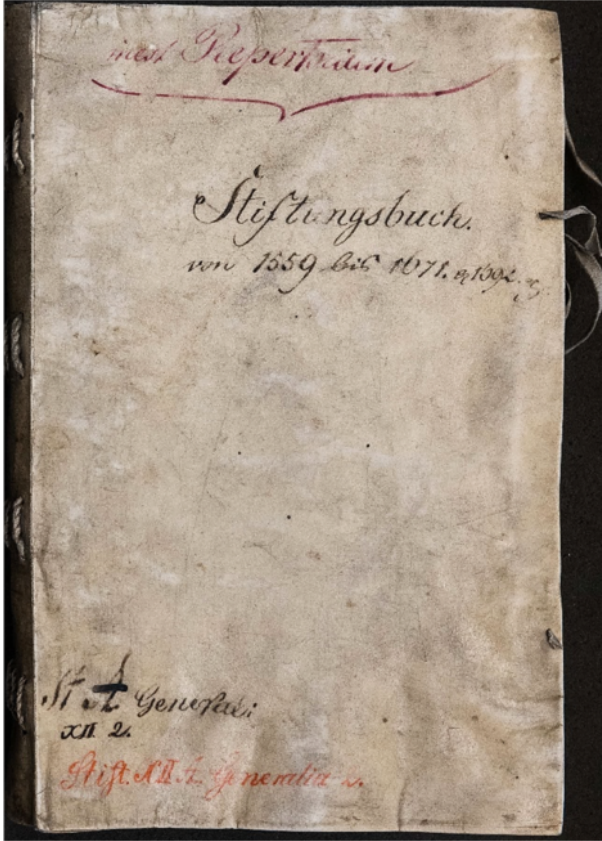 inest Repertorium
Stiftungsbuch.
von 1559 bis 1671.
St A Generalia
XII 2.
Stift. XII A. Generalia 2.